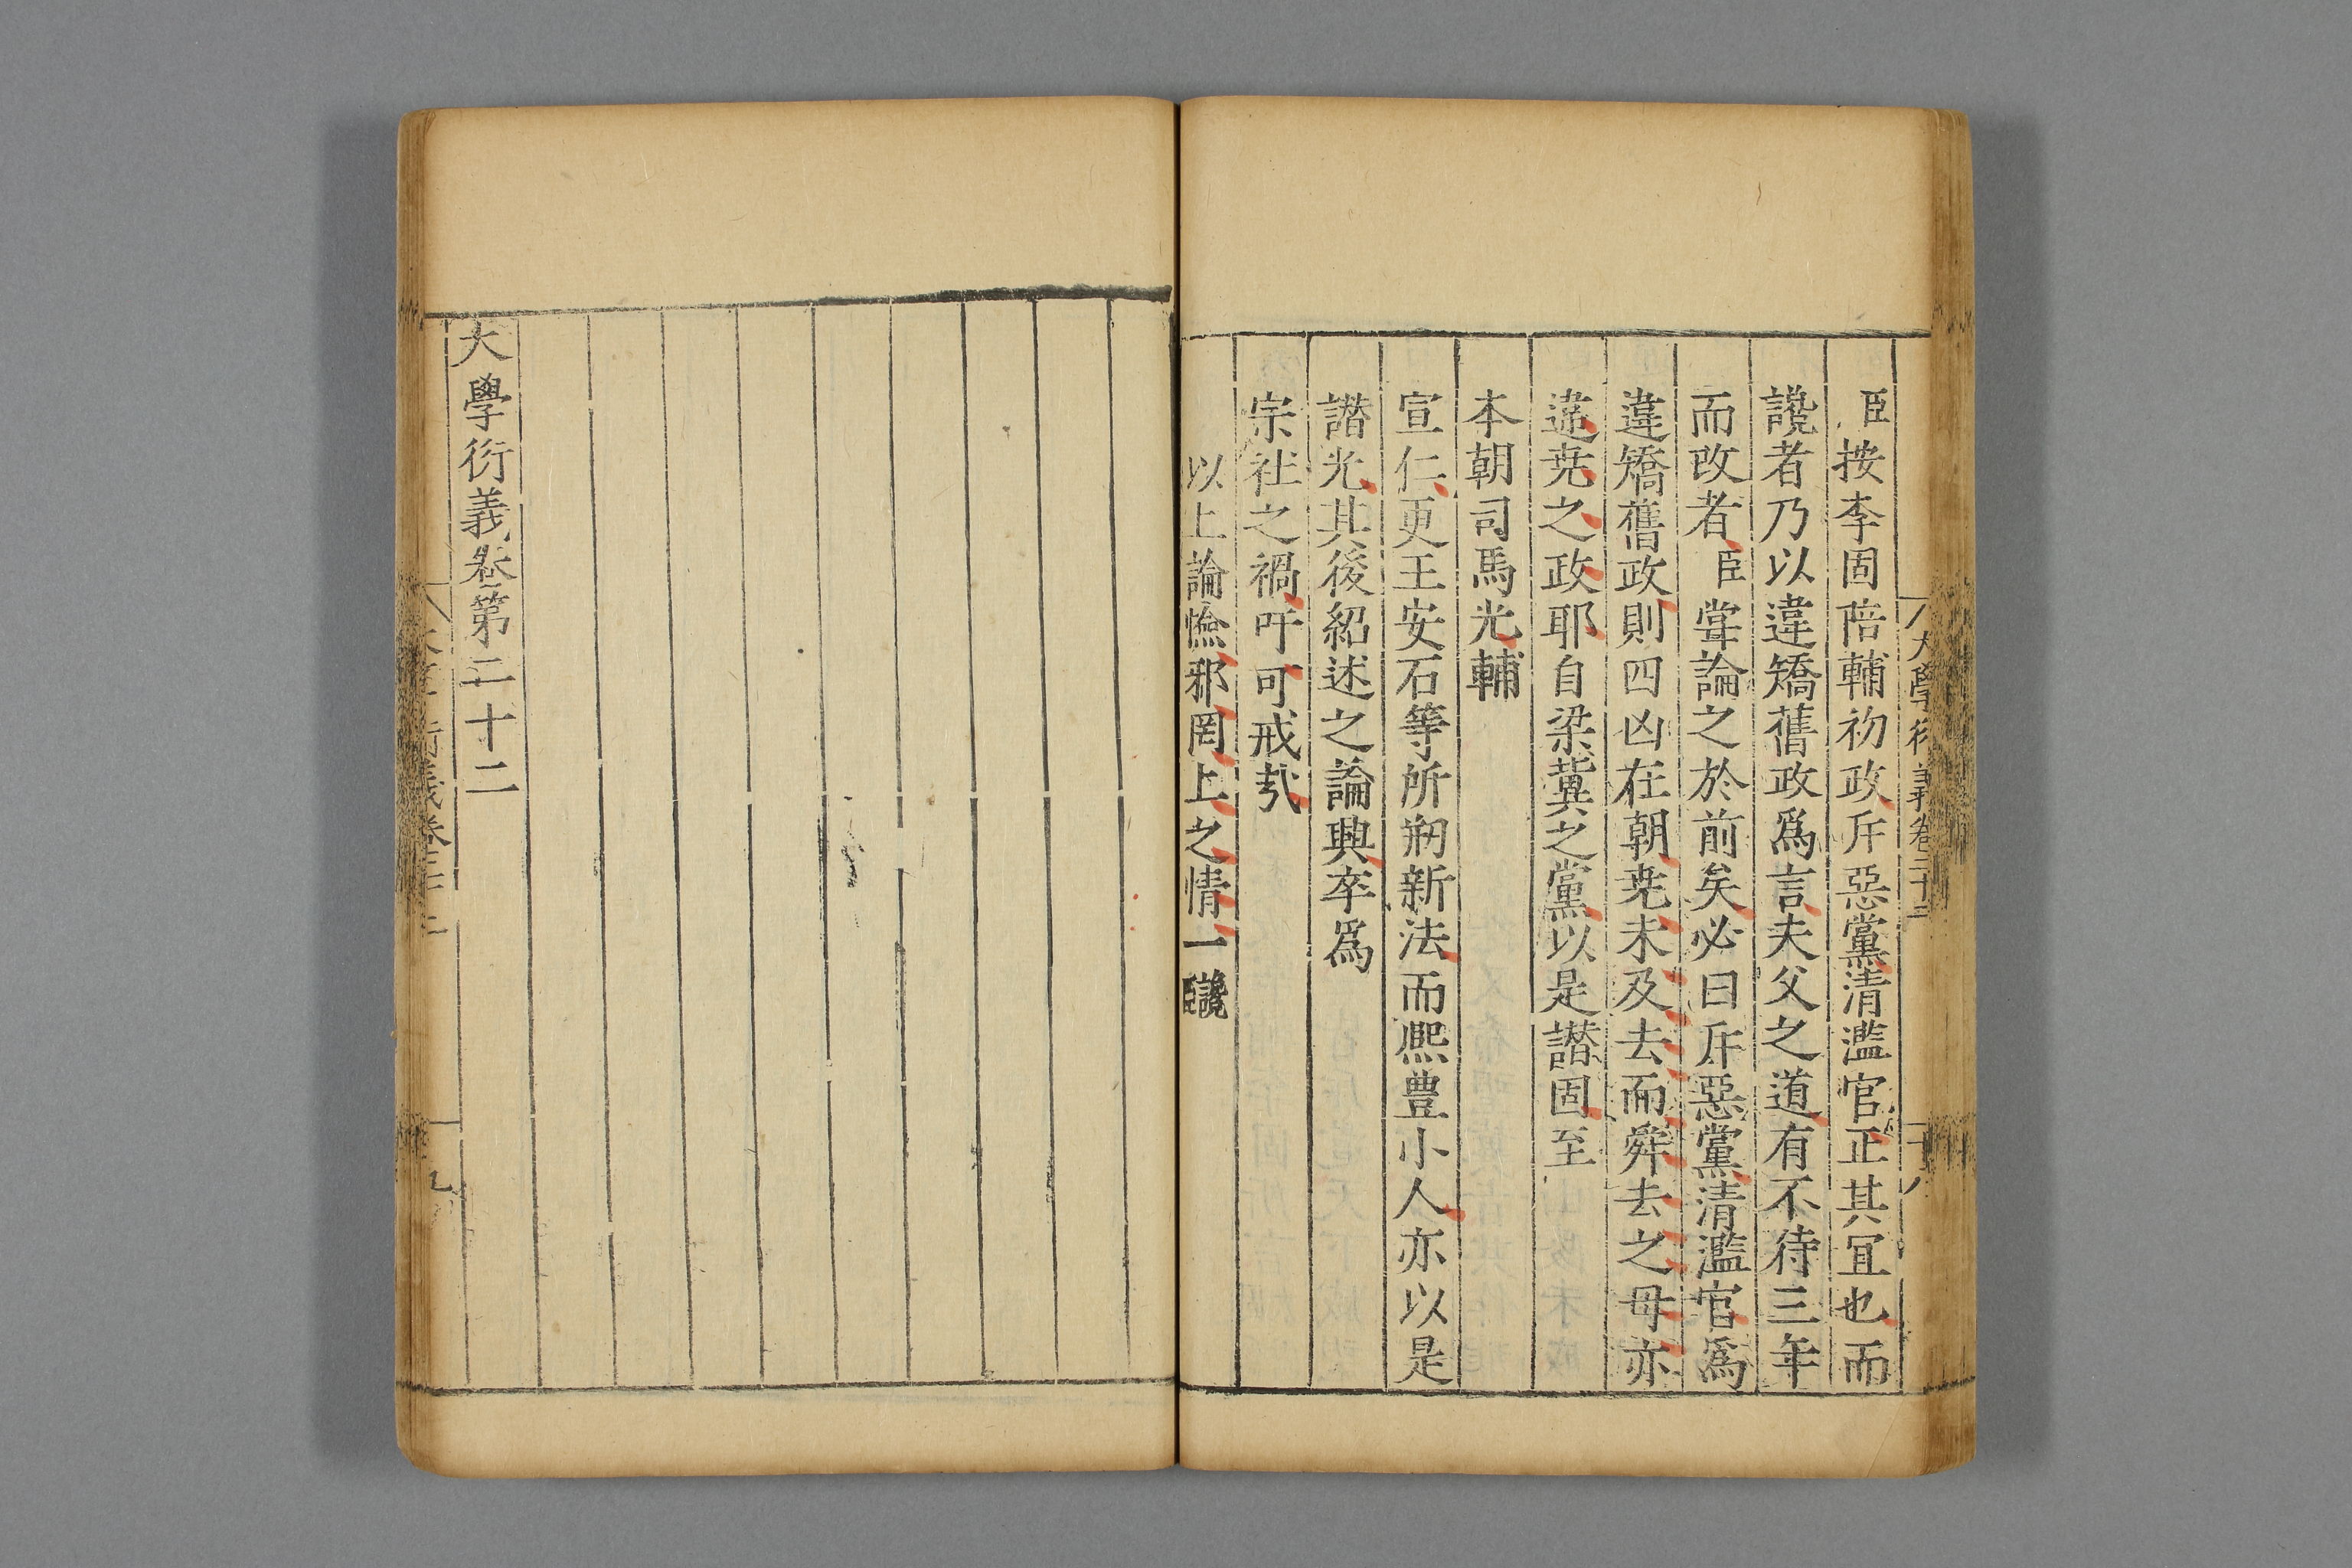 臣按李固陪輔初政斥惡黨清濫官正其冝也而
讒者乃以違矯舊政爲言夫父之道有不待三年
而改者臣甞論之於前矣必曰斥惡黨清濫官爲
違矯舊政則四凶在朝尭未及去而舜去之毋亦
違尭之政耶自梁冀之黨以是譖固至
本朝司馬光輔
宣仁更王安石等所剏新法而熈豊小人亦以是
譖光其後紹述之論興卒爲
宗社之禍吁可戒㢤
以上論憸邪罔上之情一讒臣
大學衍義卷第二十二
大學衍義卷二十二
十八